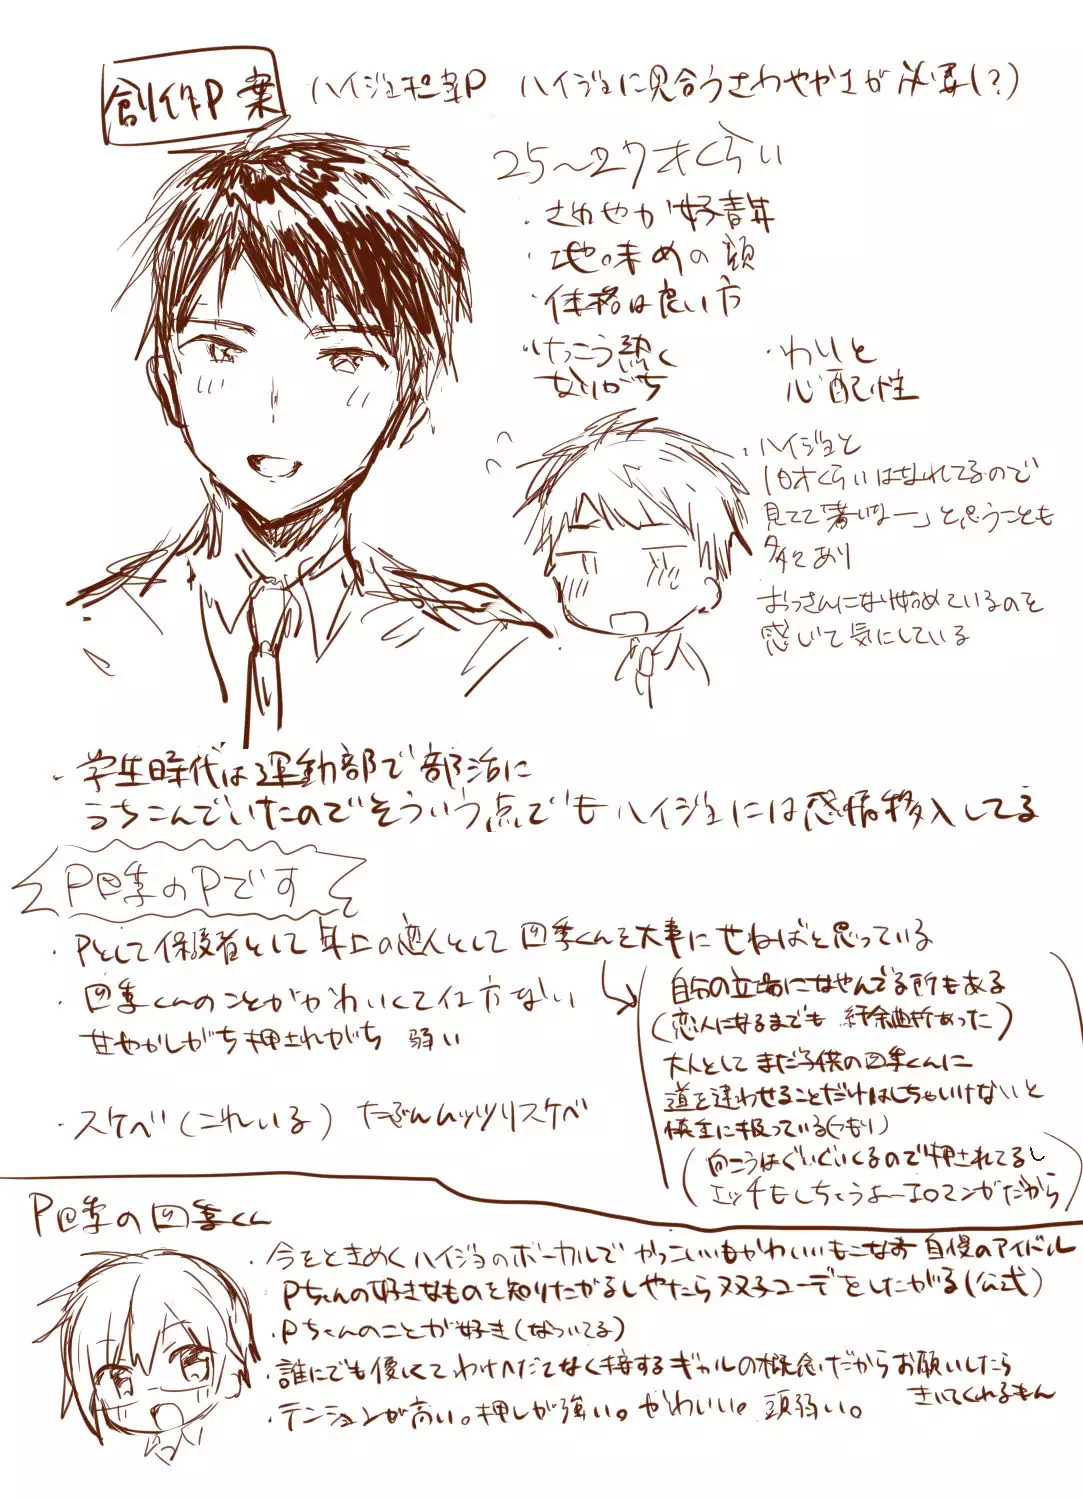 創作P案
ハイジョ担当P ハイジョに見合うさわやかさが必要(?)
25〜27才くらい
・さわやか好青年
・地味めの顔
・体格は良い方
・けっこう熱く
なりがち
・わりと
心配性
・ハイジョと
10才くらいはなれてるので
見てて「若いなー」と思うことも
多々あり
おっさんになり始めているのを
感じて気にしている
・学生時代は運動部で部活に
うちこんでいたのでそういう点でもハイジョには感情移入してる
P四季のPです
・Pとして保護者として年上の恋人として四季くんを大事にせねばと思っている
・四季くんのことがかわいくて仕方ない
甘やかしがち押されがち 弱い
・スケベ(これいる) たぶんムッツリスケベ
自分の立場になやんでる所もある
(恋人になるまでも紆余曲折あった)
大人としてまだ子供の四季くんに
道を違わせることだけはしちゃいけないと
慎重に扱っている(つもり)
(向こうはぐいぐいくるので押されてるし
エッチもしちゃうよーエロマンガだから)
P四季の四季くん
・今をときめくハイジョのボーカルでかっこいいもかわいいもこなす自慢のアイドル
Pちゃんの好きなものを知りたがるしやたら双子コーデをしたがる(公式)
・Pちゃんのことが好き(なついてる)
・誰にでも優しくてわけへだてなく接するギャルの概念だからお願いしたら
きいてくれるもん
・テンションが高い。押しが強い。かわいい。頭弱い。